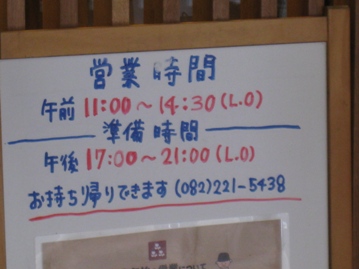 営業時間
午前 11:00～14:30 (L.O)
準備時間
午後 17:00～21:00 (L.O)
お持ち帰りできます (082)221-5438